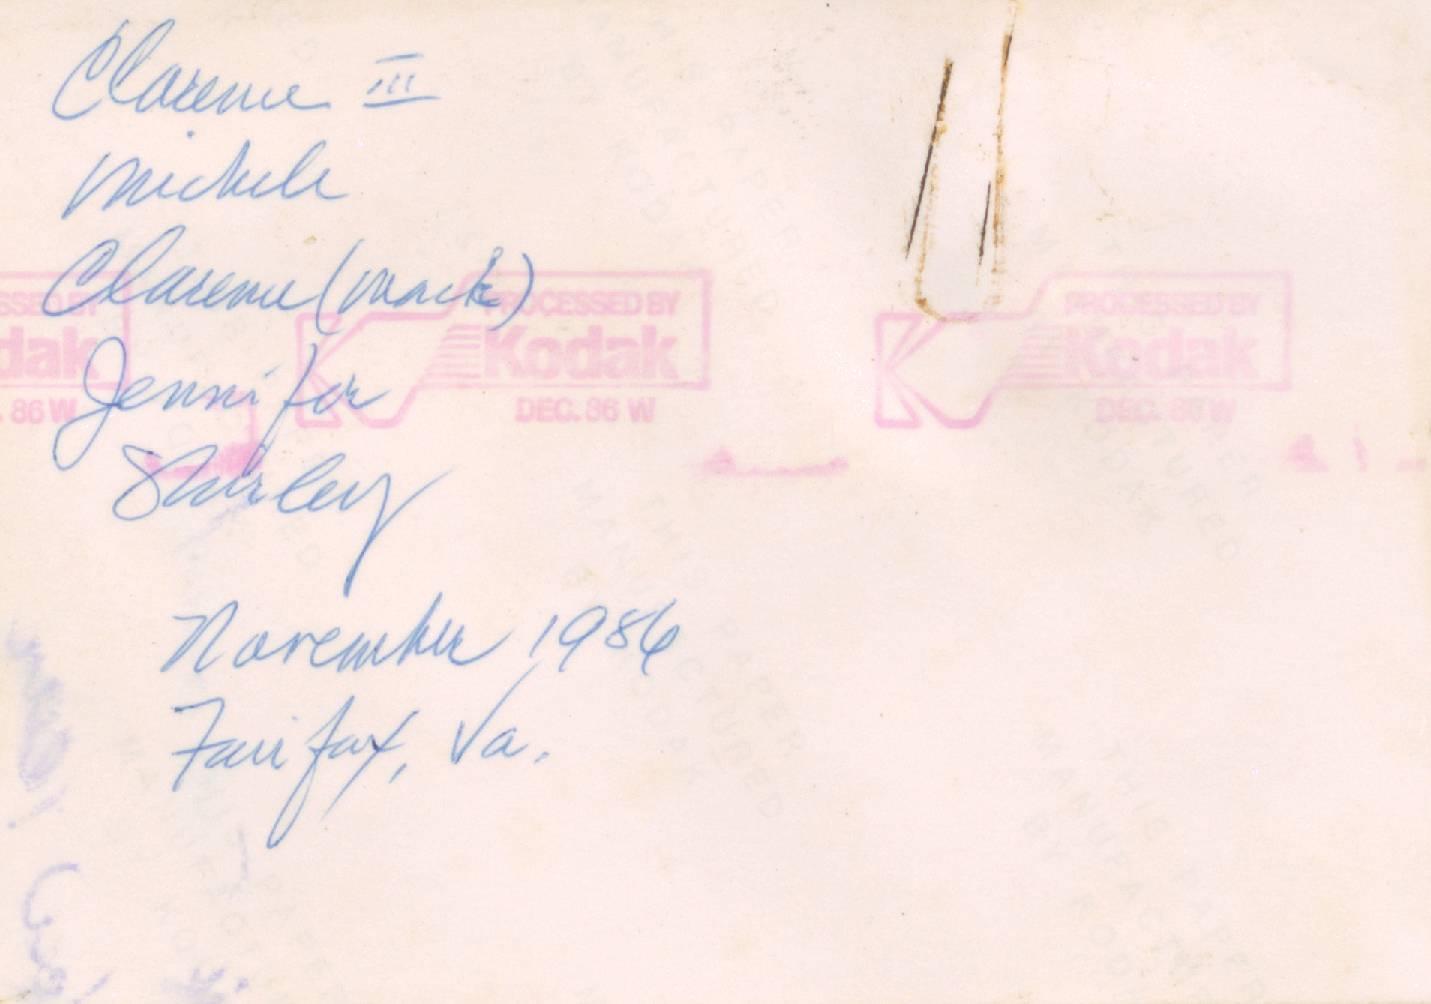 Clarence III
Michele
Clarence (Mack)
Jennifer
Shirley
November 1986
Fairfax, Va.
SSED BY
dak
. 86 W
PROCESSED BY
Kodak
DEC. 86 W
PROCESSED BY
Kodak
DEC. 86 W
THIS PAPER
MANUFACTURED
BY KODAK